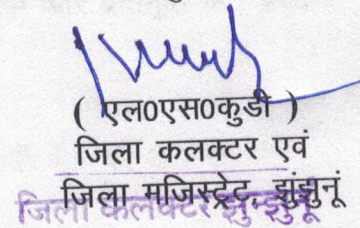 ( एल0एस0कुडी )
जिला कलक्टर एवं
जिला मजिस्ट्रेट, झुंझुनूं
जिला कलक्टर झुन्झुनू